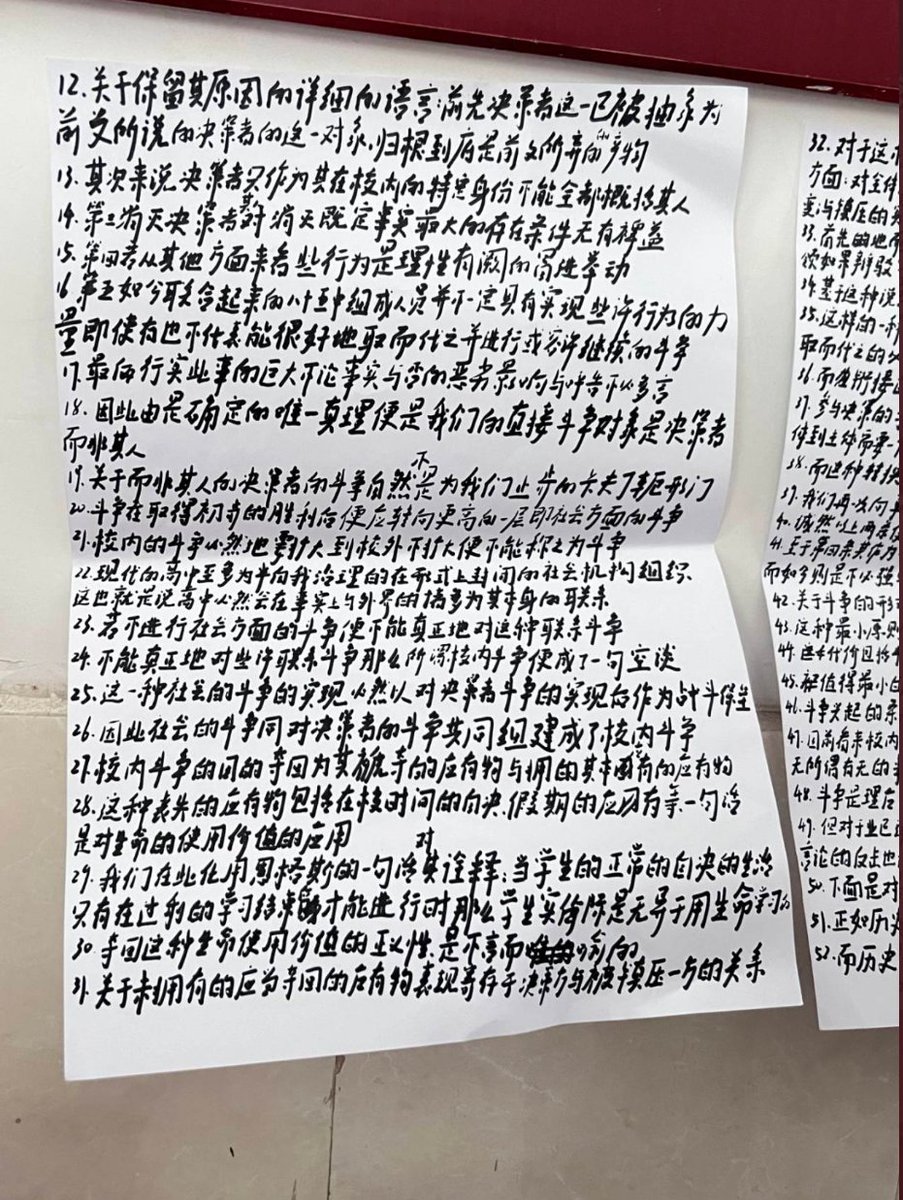 12.关于保留其原因的详细的语言:前先决策者这一已被抽象为
前文所说的决策者的这一对象,归根到底是前文所弃的产物
13.其次来说决策者只作为其在校内的特点身份不能全部概括其人
14.第三消灭决策者对消灭既定事实最大的存在条件无有裨益
15.第四者从其他方面来看些行为是理性有阙的冒进举动
16.第五如今联合起来的组成人员并不一定具有实现些许行为的力
量即使有也不代表能很好地取而代之并进行或容许继续的斗争
17.最后行实此事的巨大不论事实与否的恶劣影响与呼告不必多言
18.因此由是确定的唯一真理便是我们的直接斗争对象是决策者
而非其人
19.关于而非其人的决策者的斗争自然不是为我们止步的卡夫丁矩形门
20.斗争在取得初步的胜利后便应转向更高的一层即社会方面的斗争
21.校内的斗争必然地要扩大到校外不扩大便不能称之为斗争
22.现代的高中至多为半自我治理的在形式上封闭的社会机构组织
这也就是说高中必然会在事实上与外界的诸多为其本身的联系
23.若不进行社会方面的斗争便不能真正地对这种联系斗争
24.不能真正地对些许联系斗争那么所谓校内斗争便成了一句空谈
25.这一种社会的斗争的实现必然以对决策者斗争的实现后作为战斗保全
26.因此社会的斗争同对决策者的斗争共同组建成了校内斗争
27.校内斗争的目的夺回为其被夺的应有物与拥的其本有的应有物
28.这种丧失的应有物包括在校时间的自决假期的应有等一句话
是对生命的使用价值的应用
29.我们在此化用恩格斯的一句话对其诠释:当学生的正常的自决的生活
只有在过利的学习结束时才能进行时那么学生实际是无异于用生命学习的
30.夺回这种生命使用价值的正义性是不言而喻的
31.关于未拥有的应当夺回的应有物表现寄存于决策方与被镇压一方的关系
32.对于这
方面:对全体
变与镇压的
33.前先的地
34.基于这种说
35.这样的一种
取而代之的
36.而
37.参与决策的
38.而这种转换
39.我们再次向
40.诚然以上两
41.至于第四条
而如今则是不必强
42.关于斗争的形
43.这种最小原则
44.这么代价且
45.被值得最小的
46.斗争兴起的
47.因前者来校内
无所谓有无的
48.斗争是理在
49.但对于业已
言论的反击也
50.下面是对
51.正如历史
52.而历史